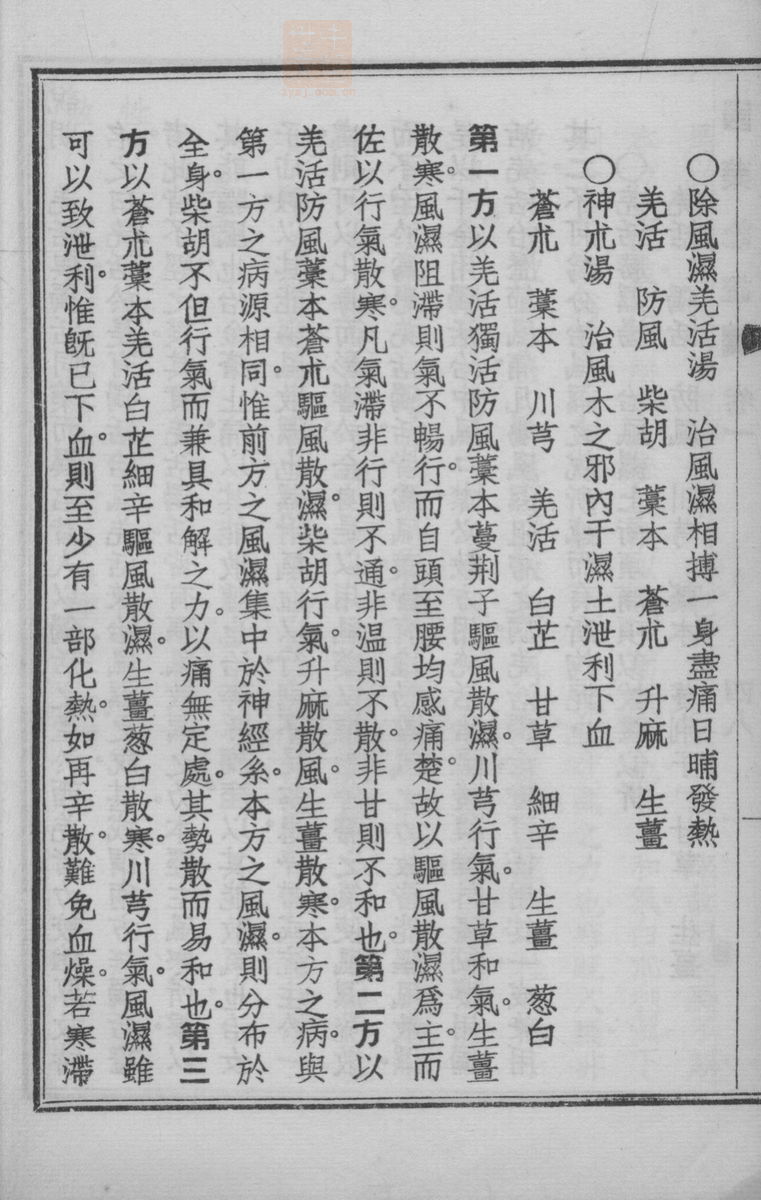 〇除風濕羌活湯　治風濕相搏一身盡痛日晡發熱
羌活　防風　柴胡　藁本　蒼朮　升麻　生薑
〇神朮湯　治風木之邪內干濕土泄利下血
蒼朮　藁本　川芎　羌活　白芷　甘草　細辛　生薑　葱白
第一方以羌活獨活防風藁本蔓荆子驅風散濕。川芎行氣。甘草和氣。生薑
散寒。風濕阻滯則氣不暢行。而自頭至腰均感痛楚。故以驅風散濕爲主。而
佐以行氣散寒。凡氣滯非行則不通。非温則不散。非甘則不和也。第二方以
羌活防風藁本蒼朮驅風散濕。柴胡行氣。升麻散風。生薑散寒。本方之病。與
第一方之病源相同。惟前方之風濕集中於神經系。本方之風濕。則分布於
全身。柴胡不但行氣而兼具和解之力。以痛無定處。其勢散而易和也。第三
方以蒼朮藁本羌活白芷細辛驅風散濕。生薑葱白散寒。川芎行氣。風濕雖
可以致泄利。惟旣已下血。則至少有一部化熱。如再辛散。難免血燥。若寒滯